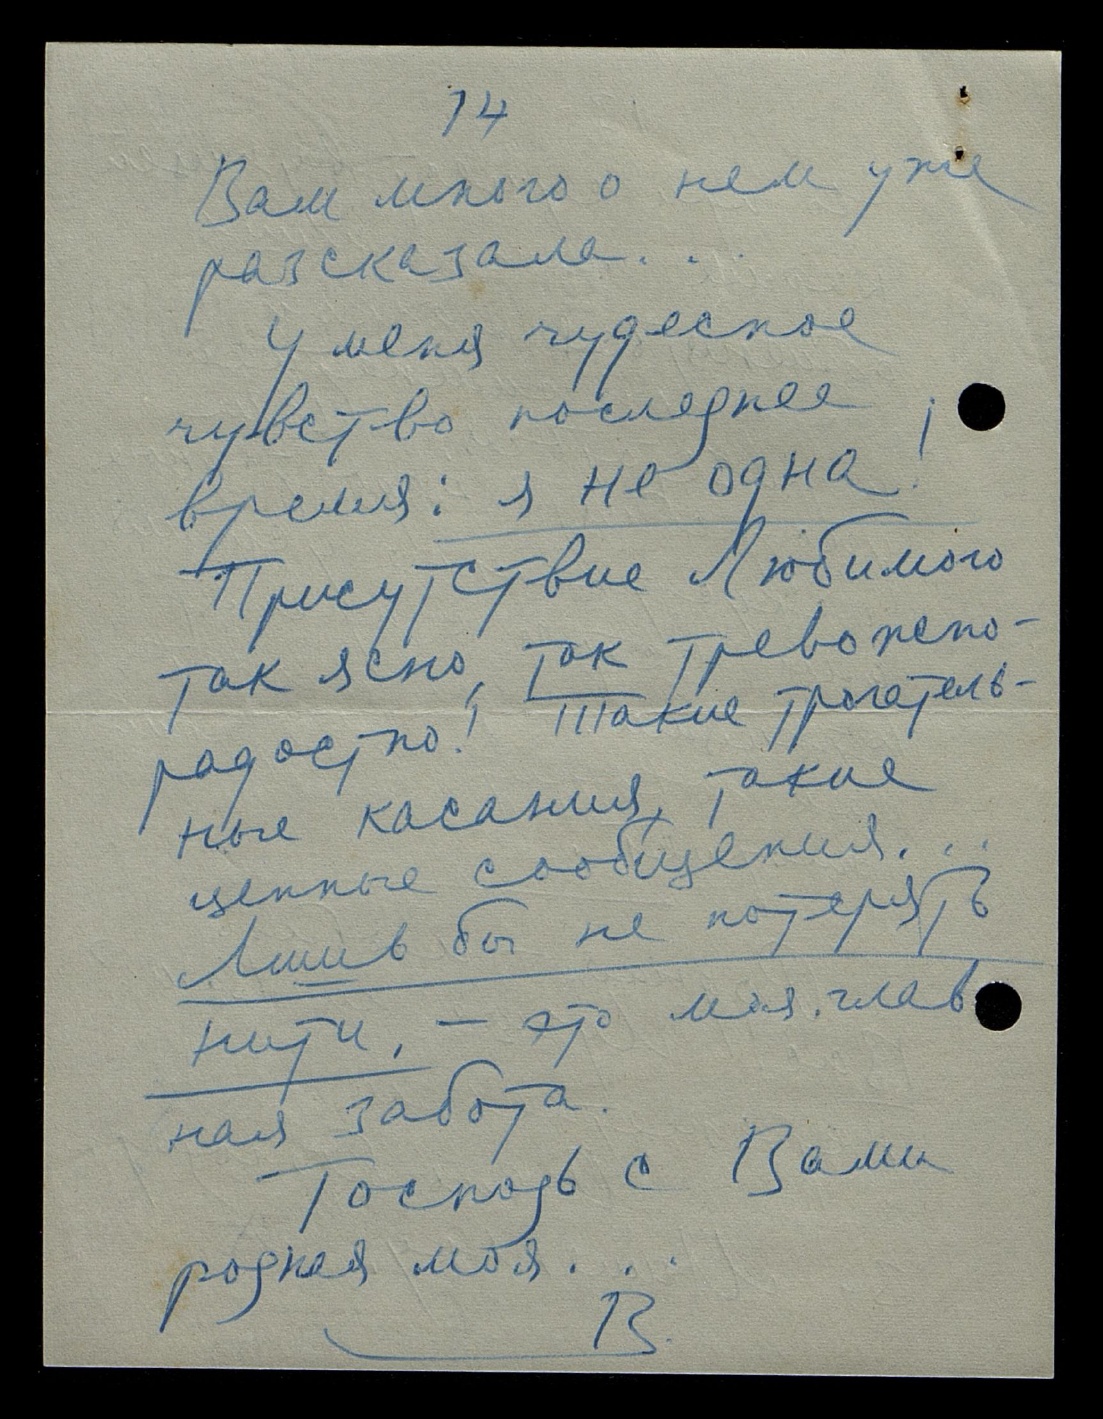 14
Вам много о нем уже
разсказала...
У меня чудесное
чувство последнее
время: я не одна!
Присутствие Любимого
так ясно, так тревожно-
радостно! Такие трогатель-
ные касания, такие
ценные сообщения...
Лишь бы не потерять
нити, — это моя глав
ная забота.
Господь с Вами
родная моя...
В.